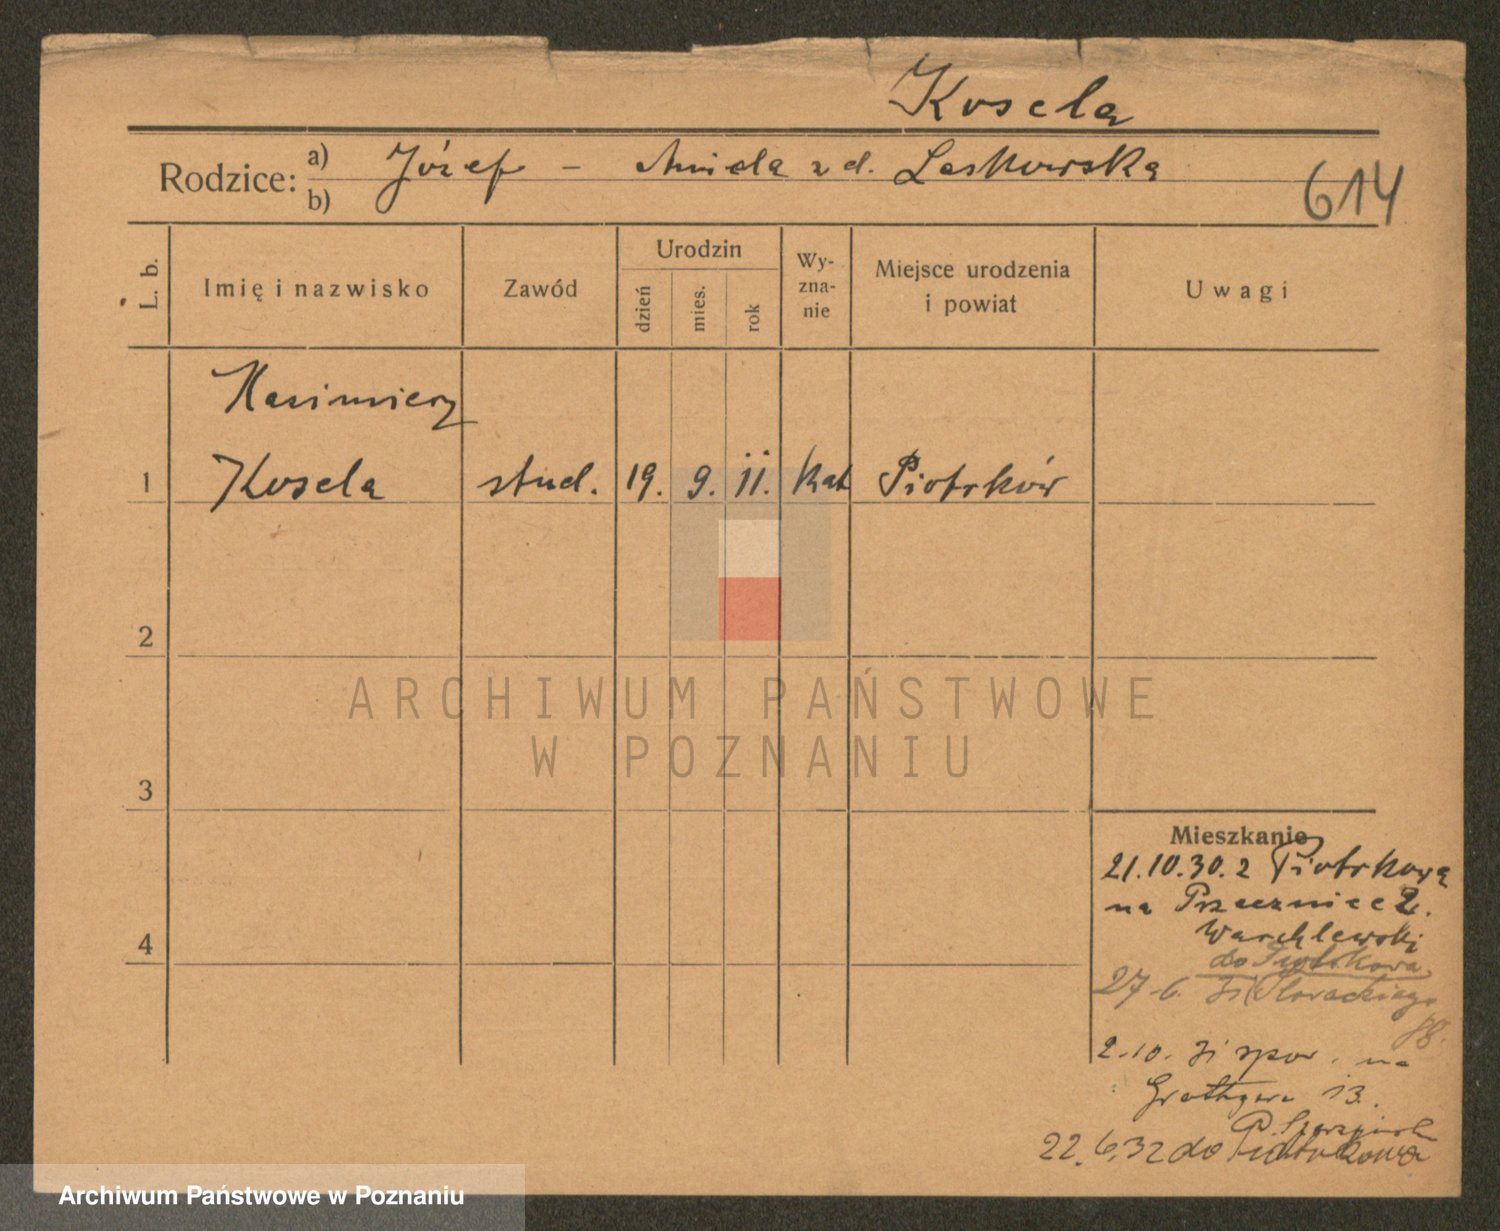 Kosela
Rodzice: a) b) Józef – Aniela z d. Laskowska
614
L. b. Imię i nazwisko Zawód Urodzin dzień mies. rok Wyznanie Miejsce urodzenia i powiat Uwagi
Kazimierz
1 Kosela stud. 19. 9. 11. Kat Piotrków
2
ARCHIWUM PAŃSTWOWE
W POZNANIU
3
Mieszkanie
21.10.30. z Piotrkowa
na Przecznice 2.
4
do Piotrkowa
27-6. 31 Słowackiego
2.10. 31 spow. na
13.
22.6.32 do Piotrkowa
Archiwum Państwowe w Poznaniu